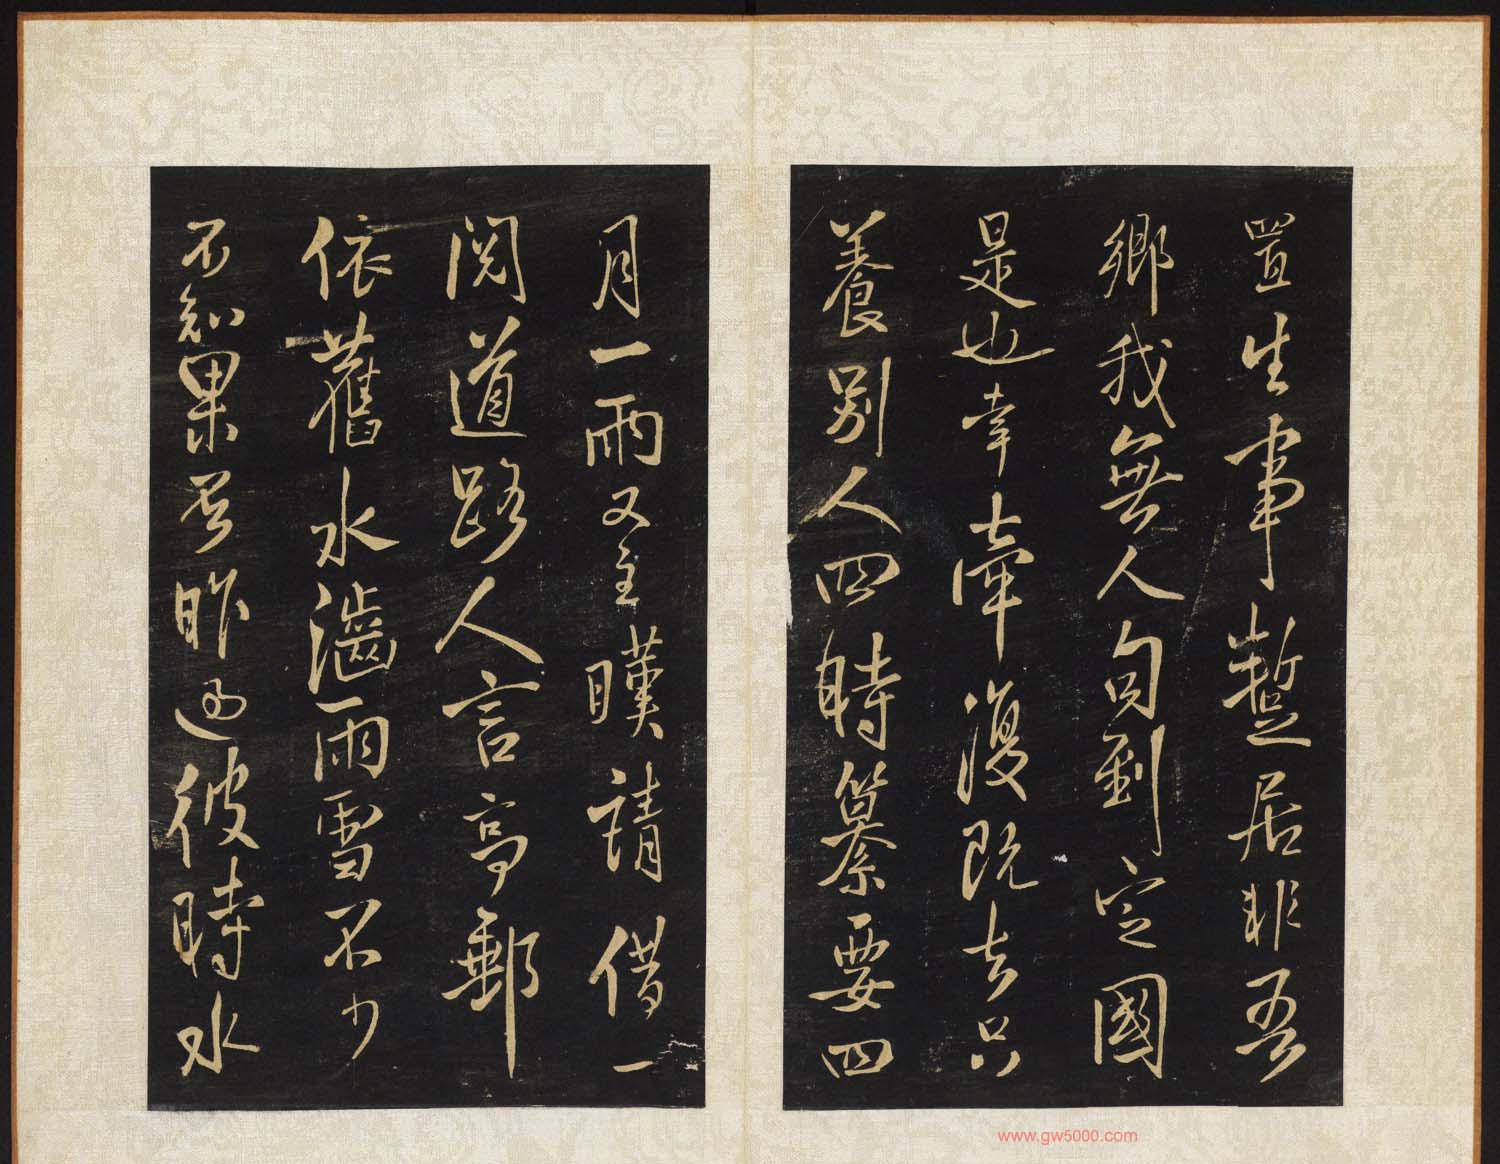 置生事暫居非吾
鄉我無人句到定國
是也幸牽復既去只
養別人四時纂要四
月一雨又至暵請借一
閱道路人言高郵
依舊水澁雨雪不少
不知果否昨過彼時水
www.gw5000.com